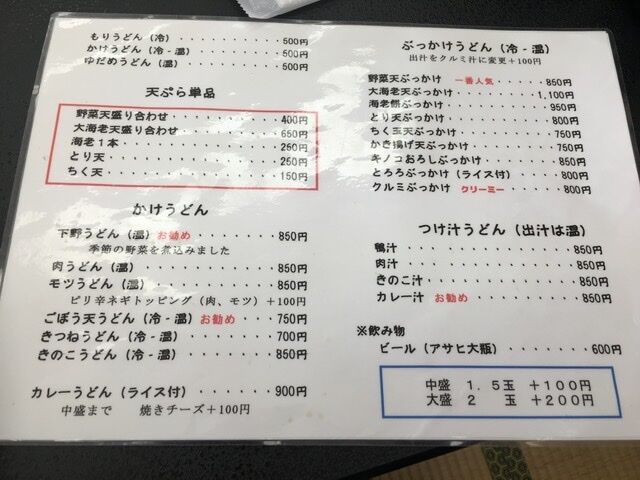 もりうどん（冷）・・・・・・・・500円
かけうどん（冷‐温）・・・・・・500円
ゆだめうどん（温）・・・・・・・500円
天ぷら単品
野菜天盛り合わせ・・・・・・・・400円
大海老天盛り合わせ・・・・・・・650円
海老１本・・・・・・・・・・・・260円
とり天・・・・・・・・・・・・・250円
ちく天・・・・・・・・・・・・・150円
かけうどん
下野うどん（温）お勧め・・・・・・850円
季節の野菜を煮込みました
肉うどん（温）・・・・・・・・・・850円
モツうどん（温）・・・・・・・・・850円
ピリ辛ネギトッピング（肉、モツ）＋100円
ごぼう天うどん（冷‐温）お勧め・・750円
きつねうどん（冷‐温）・・・・・・700円
きのこうどん（冷‐温）・・・・・・850円
カレーうどん（ライス付）・・・・・900円
中盛まで　焼きチーズ＋100円
ぶっかけうどん（冷‐温）
出汁をクルミ汁に変更＋100円
野菜天ぶっかけ　一番人気・・・・850円
大海老天ぶっかけ・・・・・・・1,100円
海老餅ぶっかけ・・・・・・・・・950円
とり天ぶっかけ・・・・・・・・・800円
ちく玉天ぶっかけ・・・・・・・・800円
かき揚げ天ぶっかけ・・・・・・・750円
キノコおろしぶっかけ・・・・・・750円
とろろぶっかけ（ライス付）・・・800円
クルミぶっかけ　クリーミー・・・800円
つけ汁うどん（出汁は温）
鴨汁・・・・・・・・・・・・・・850円
肉汁・・・・・・・・・・・・・・850円
きのこ汁・・・・・・・・・・・・850円
カレー汁　お勧め・・・・・・・・850円
※飲み物
ビール（アサヒ大瓶）・・・・・・600円
中盛　１．５玉　＋１００円
大盛　２　　玉　＋２００円